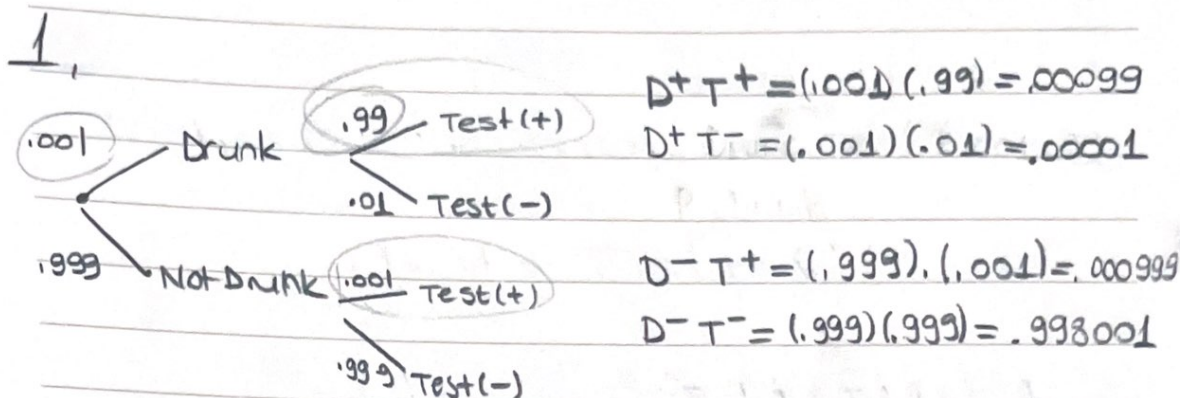 1.
.99 Test(+)
.001 Drunk
.01 Test(-)
.999 Not Drunk .001 Test(+)
.999 Test(-)
D+ T+ = (.001) (.99) = .00099
D+ T- = (.001) (.01) = .00001
D- T+ = (.999). (.001) = .000999
D- T- = (.999) (.999) = .998001